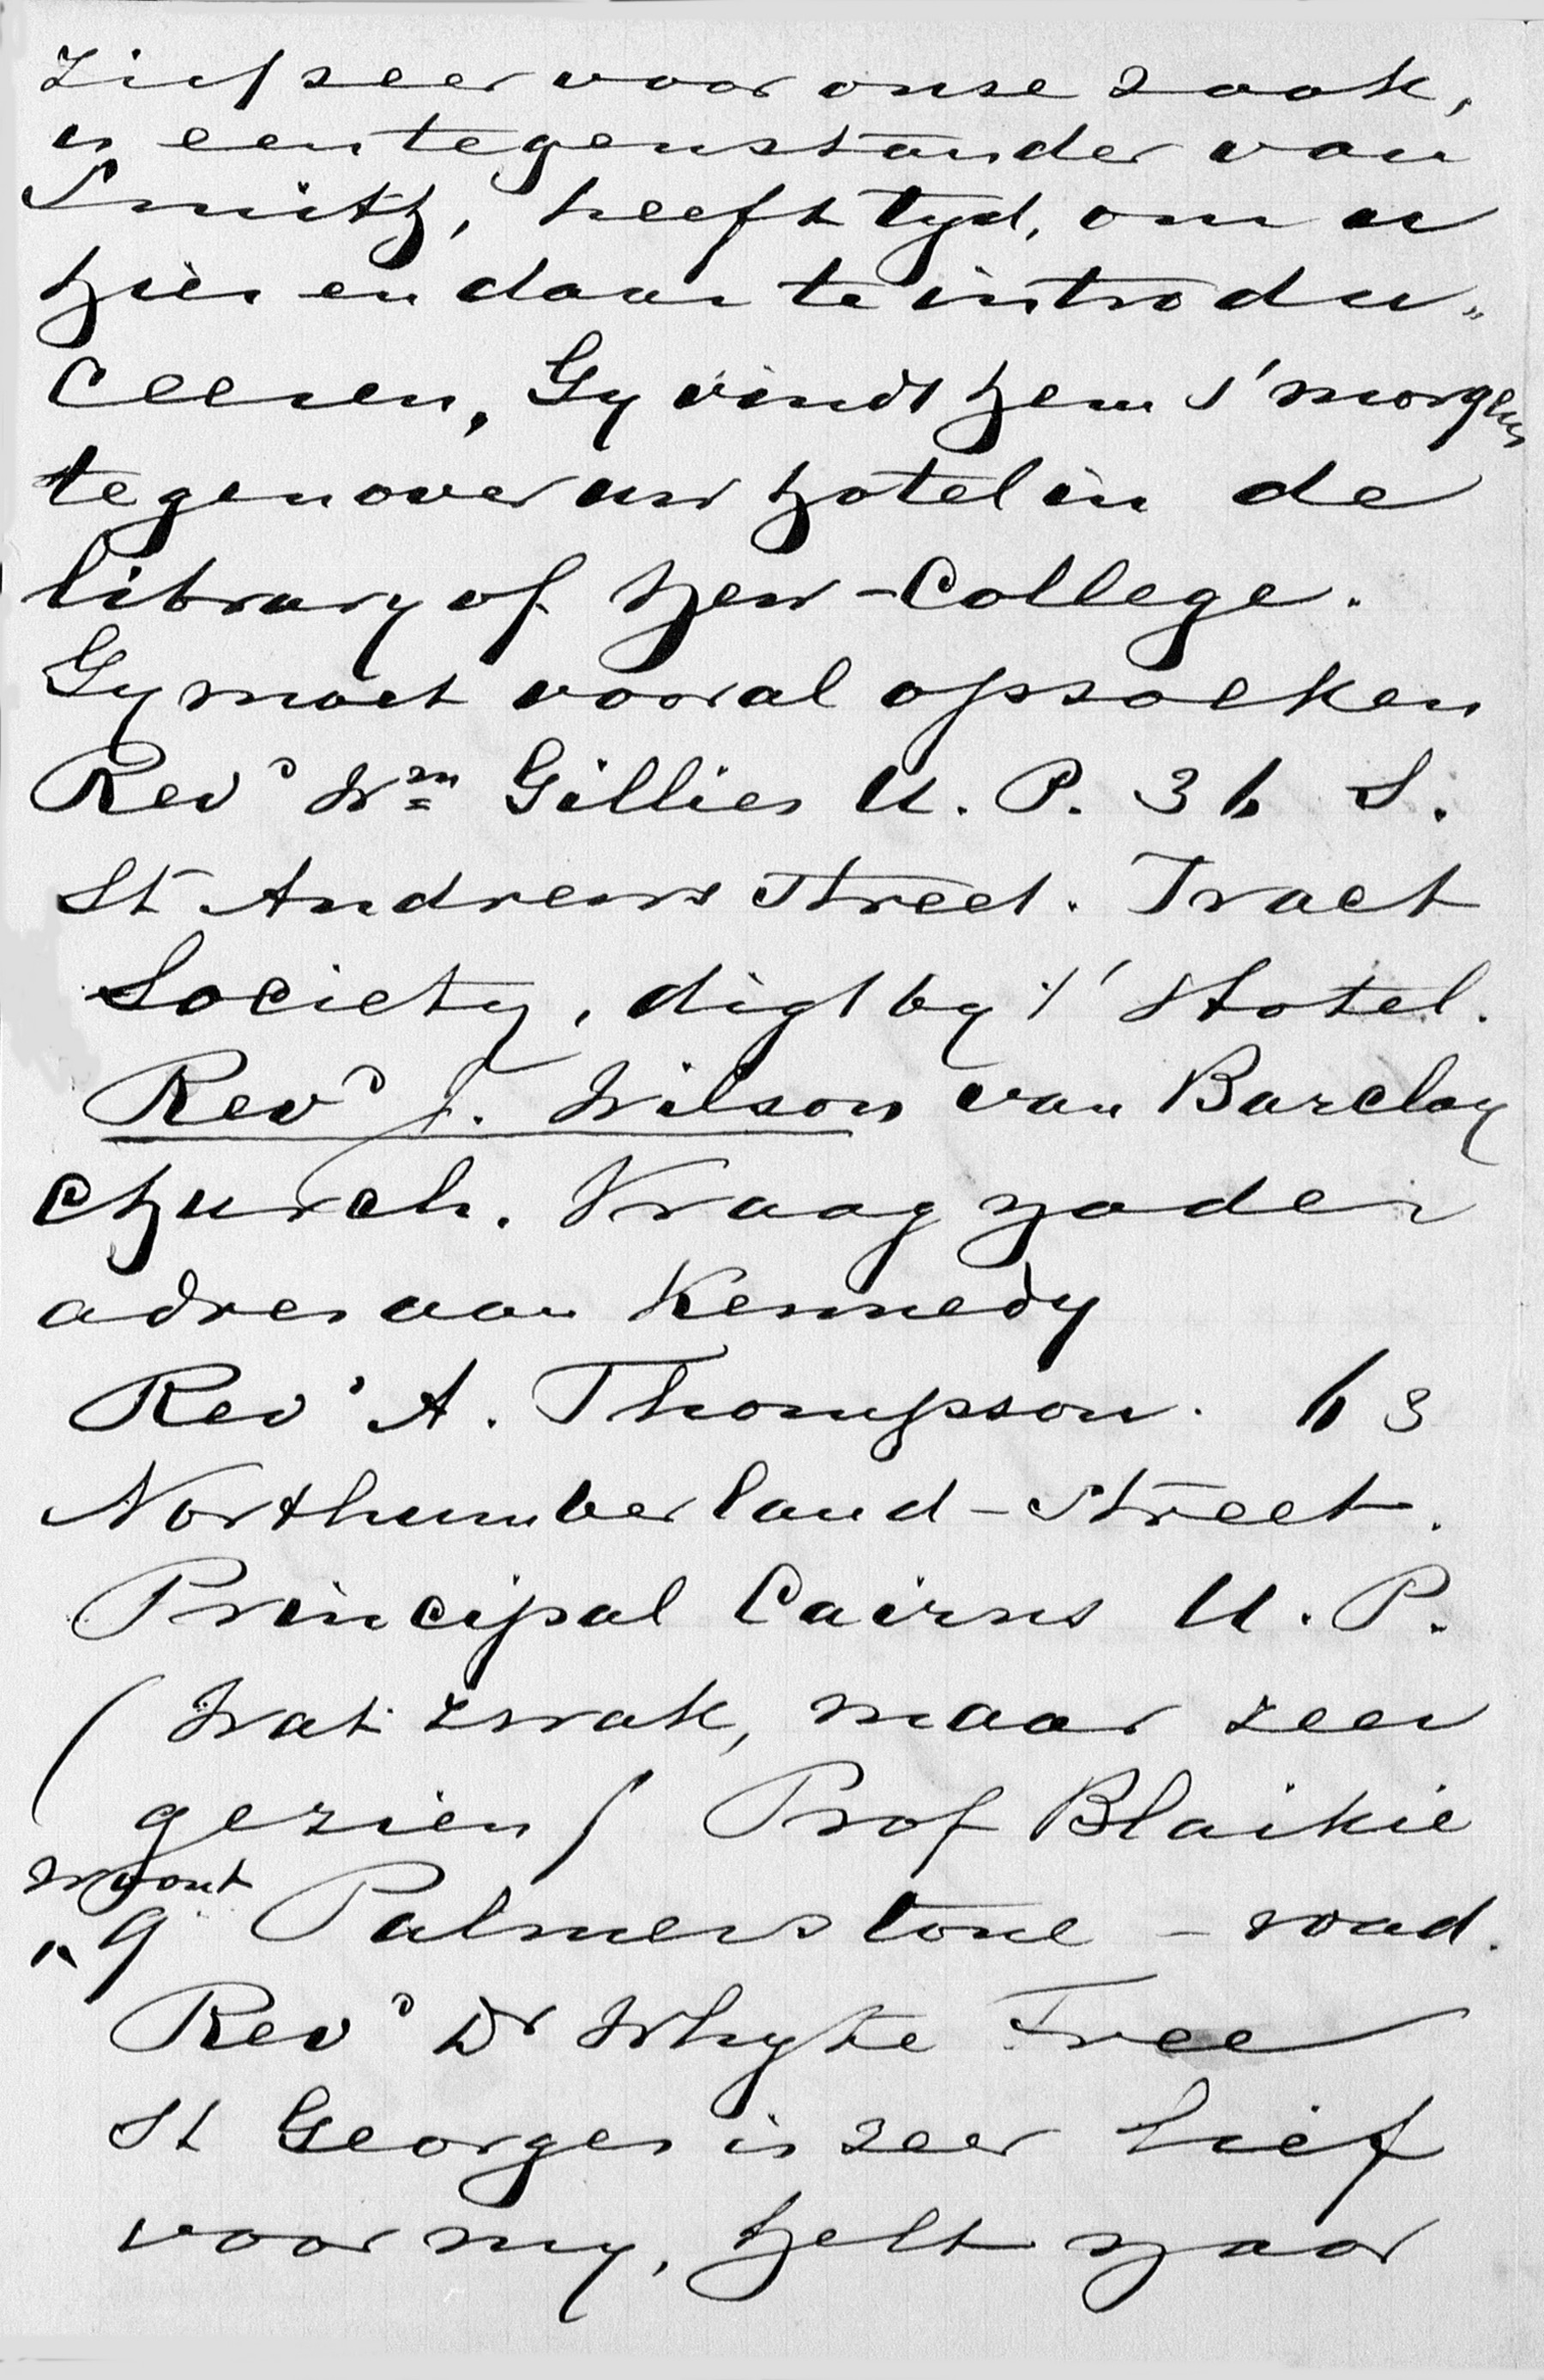 zich seer voor onse zaak,
is een tegenstander van
Smith, heeft tyd, om u
hier en daar te introdu„
ceeren. Gy vindt hem s'morgens
tegenover uw hotel in de
library of New-College.
Gy moet vooral opzoeken
Revd Wm Gillies U. P. 36 S.
St Andrews Street. Tract
Society, digt by 't Hotel.
Revd J. Wilson van Barclay
Church. Vraag nader
adres aan Kennedy
Revd A. Thompson. 63
Northumberland-Street.
Principal Cairns U. P.
(Wat zwak, maar zeer
gezien) Prof Blaikie
woont
9 Palmerstone - road.
Revd Dr Whyte Free
St Georges is zeer lief
voor my, helt naar